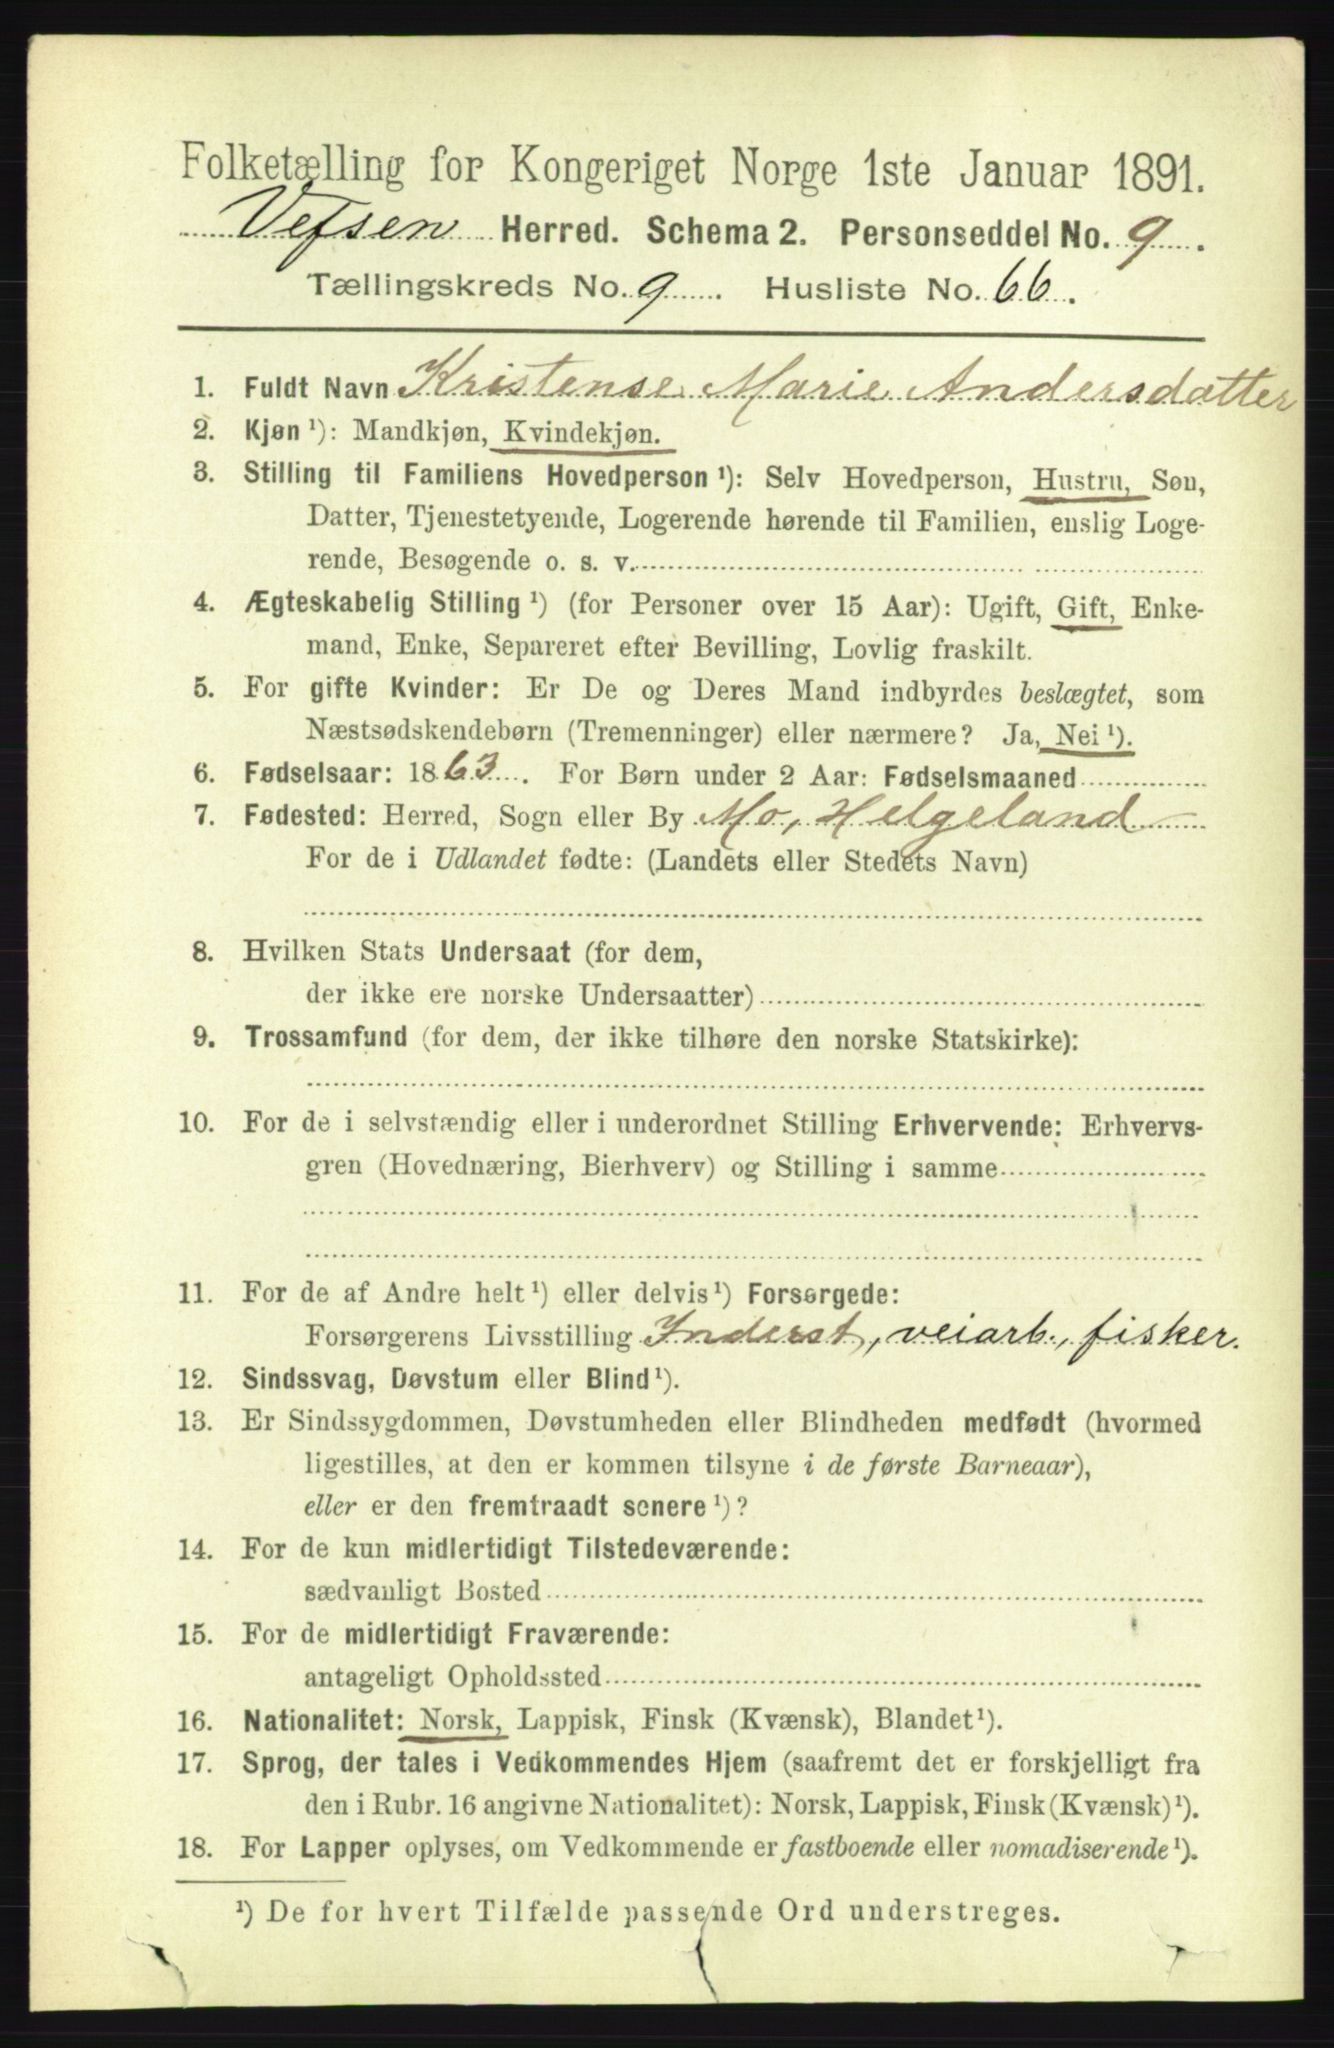 Folketælling for Kongeriget Norge 1ste Januar 1891.
Vefsen Herred. Schema 2. Personseddel No. 9.
Tællingskreds No. 9. Husliste No. 66.
1. Fuldt Navn Kristense Marie Andersdatter
2. Kjøn ¹): Mandkjøn, Kvindekjøn.
3. Stilling til Familiens Hovedperson ¹): Selv Hovedperson, Hustru, Søn,
Datter, Tjenestetyende, Logerende hørende til Familien, enslig Loge-
rende, Besøgende o. s. v.
4. Ægteskabelig Stilling ¹) (for Personer over 15 Aar): Ugift, Gift, Enke-
mand, Enke, Separeret efter Bevilling, Lovlig fraskilt.
5. For gifte Kvinder: Er De og Deres Mand indbyrdes beslægtet, som
Næstsødskendebørn (Tremenninger) eller nærmere? Ja, Nei ¹).
6. Fødselsaar: 1863. For Børn under 2 Aar: Fødselsmaaned
7. Fødested: Herred, Sogn eller By Mo, Helgeland
For de i Udlandet fødte: (Landets eller Stedets Navn)
8. Hvilken Stats Undersaat (for dem,
der ikke ere norske Undersaatter)
9. Trossamfund (for dem, der ikke tilhøre den norske Statskirke):
10. For de i selvstændig eller i underordnet Stilling Erhvervende: Erhvervs-
gren (Hovednæring, Bierhverv) og Stilling i samme
11. For de af Andre helt ¹) eller delvis ¹) Forsørgede:
Forsørgerens Livsstilling Inderst, veiarb., fisker.
12. Sindssvag, Døvstum eller Blind ¹).
13. Er Sindssygdommen, Døvstumheden eller Blindheden medfødt (hvormed
ligestilles, at den er kommen tilsyne i de første Barneaar),
eller er den fremtraadt senere ¹)?
14. For de kun midlertidigt Tilstedeværende:
sædvanligt Bosted
15. For de midlertidigt Fraværende:
antageligt Opholdssted
16. Nationalitet: Norsk, Lappisk, Finsk (Kvænsk), Blandet ¹).
17. Sprog, der tales i Vedkommendes Hjem (saafremt det er forskjelligt fra
den i Rubr. 16 angivne Nationalitet): Norsk, Lappisk, Finsk (Kvænsk) ¹).
18. For Lapper oplyses, om Vedkommende er fastboende eller nomadiserende ¹).
¹) De for hvert Tilfælde passende Ord understreges.